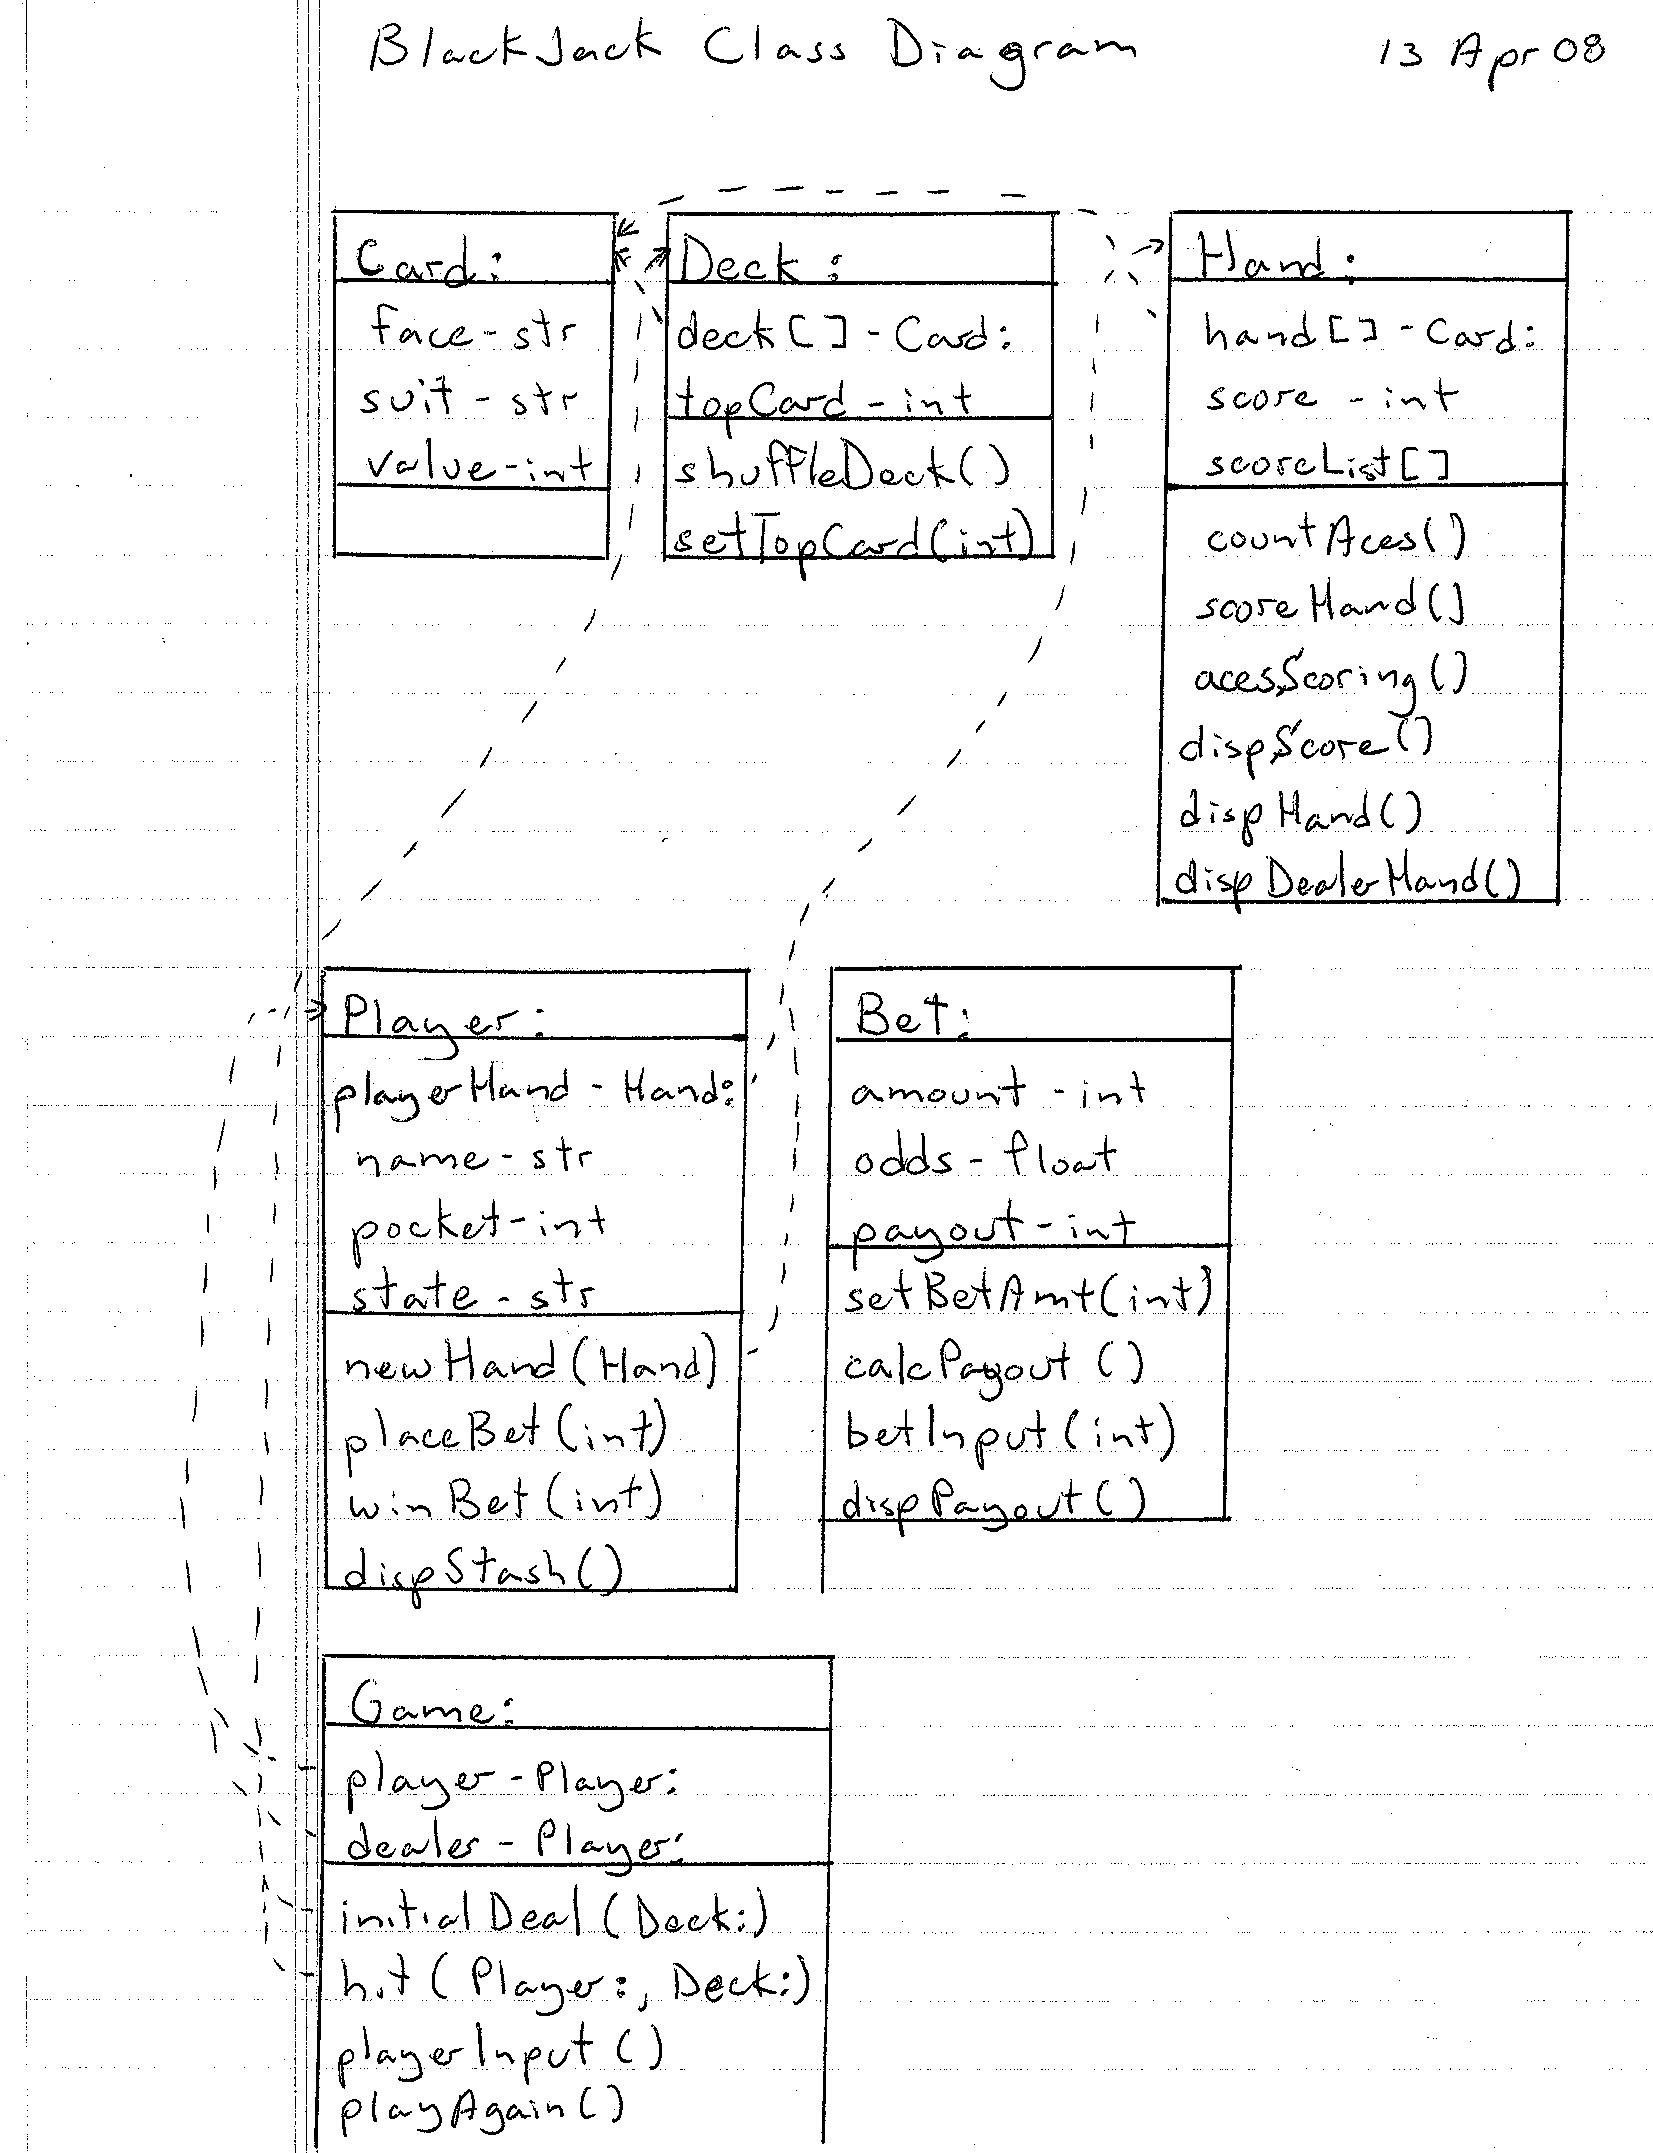 BlackJack Class Diagram 13 Apr 08
Card:
face - str
suit - str
value - int
Deck:
deck[] - Card:
topCard - int
shuffleDeck()
setTopCard(int)
Hand:
hand[] - Card:
score - int
scoreList[]
countAces()
scoreHand()
acesScoring()
dispScore()
dispHand()
dispDealerHand()
Player:
playerHand - Hand:
name - str
pocket - int
state - str
newHand(Hand)
placeBet(int)
winBet(int)
dispStash()
Bet:
amount - int
odds - float
payout - int
setBetAmt(int)
calcPayout()
betInput(int)
dispPayout()
Game:
player - Player:
dealer - Player:
initialDeal(Deck:)
hit(Player:, Deck:)
playerInput()
playAgain()